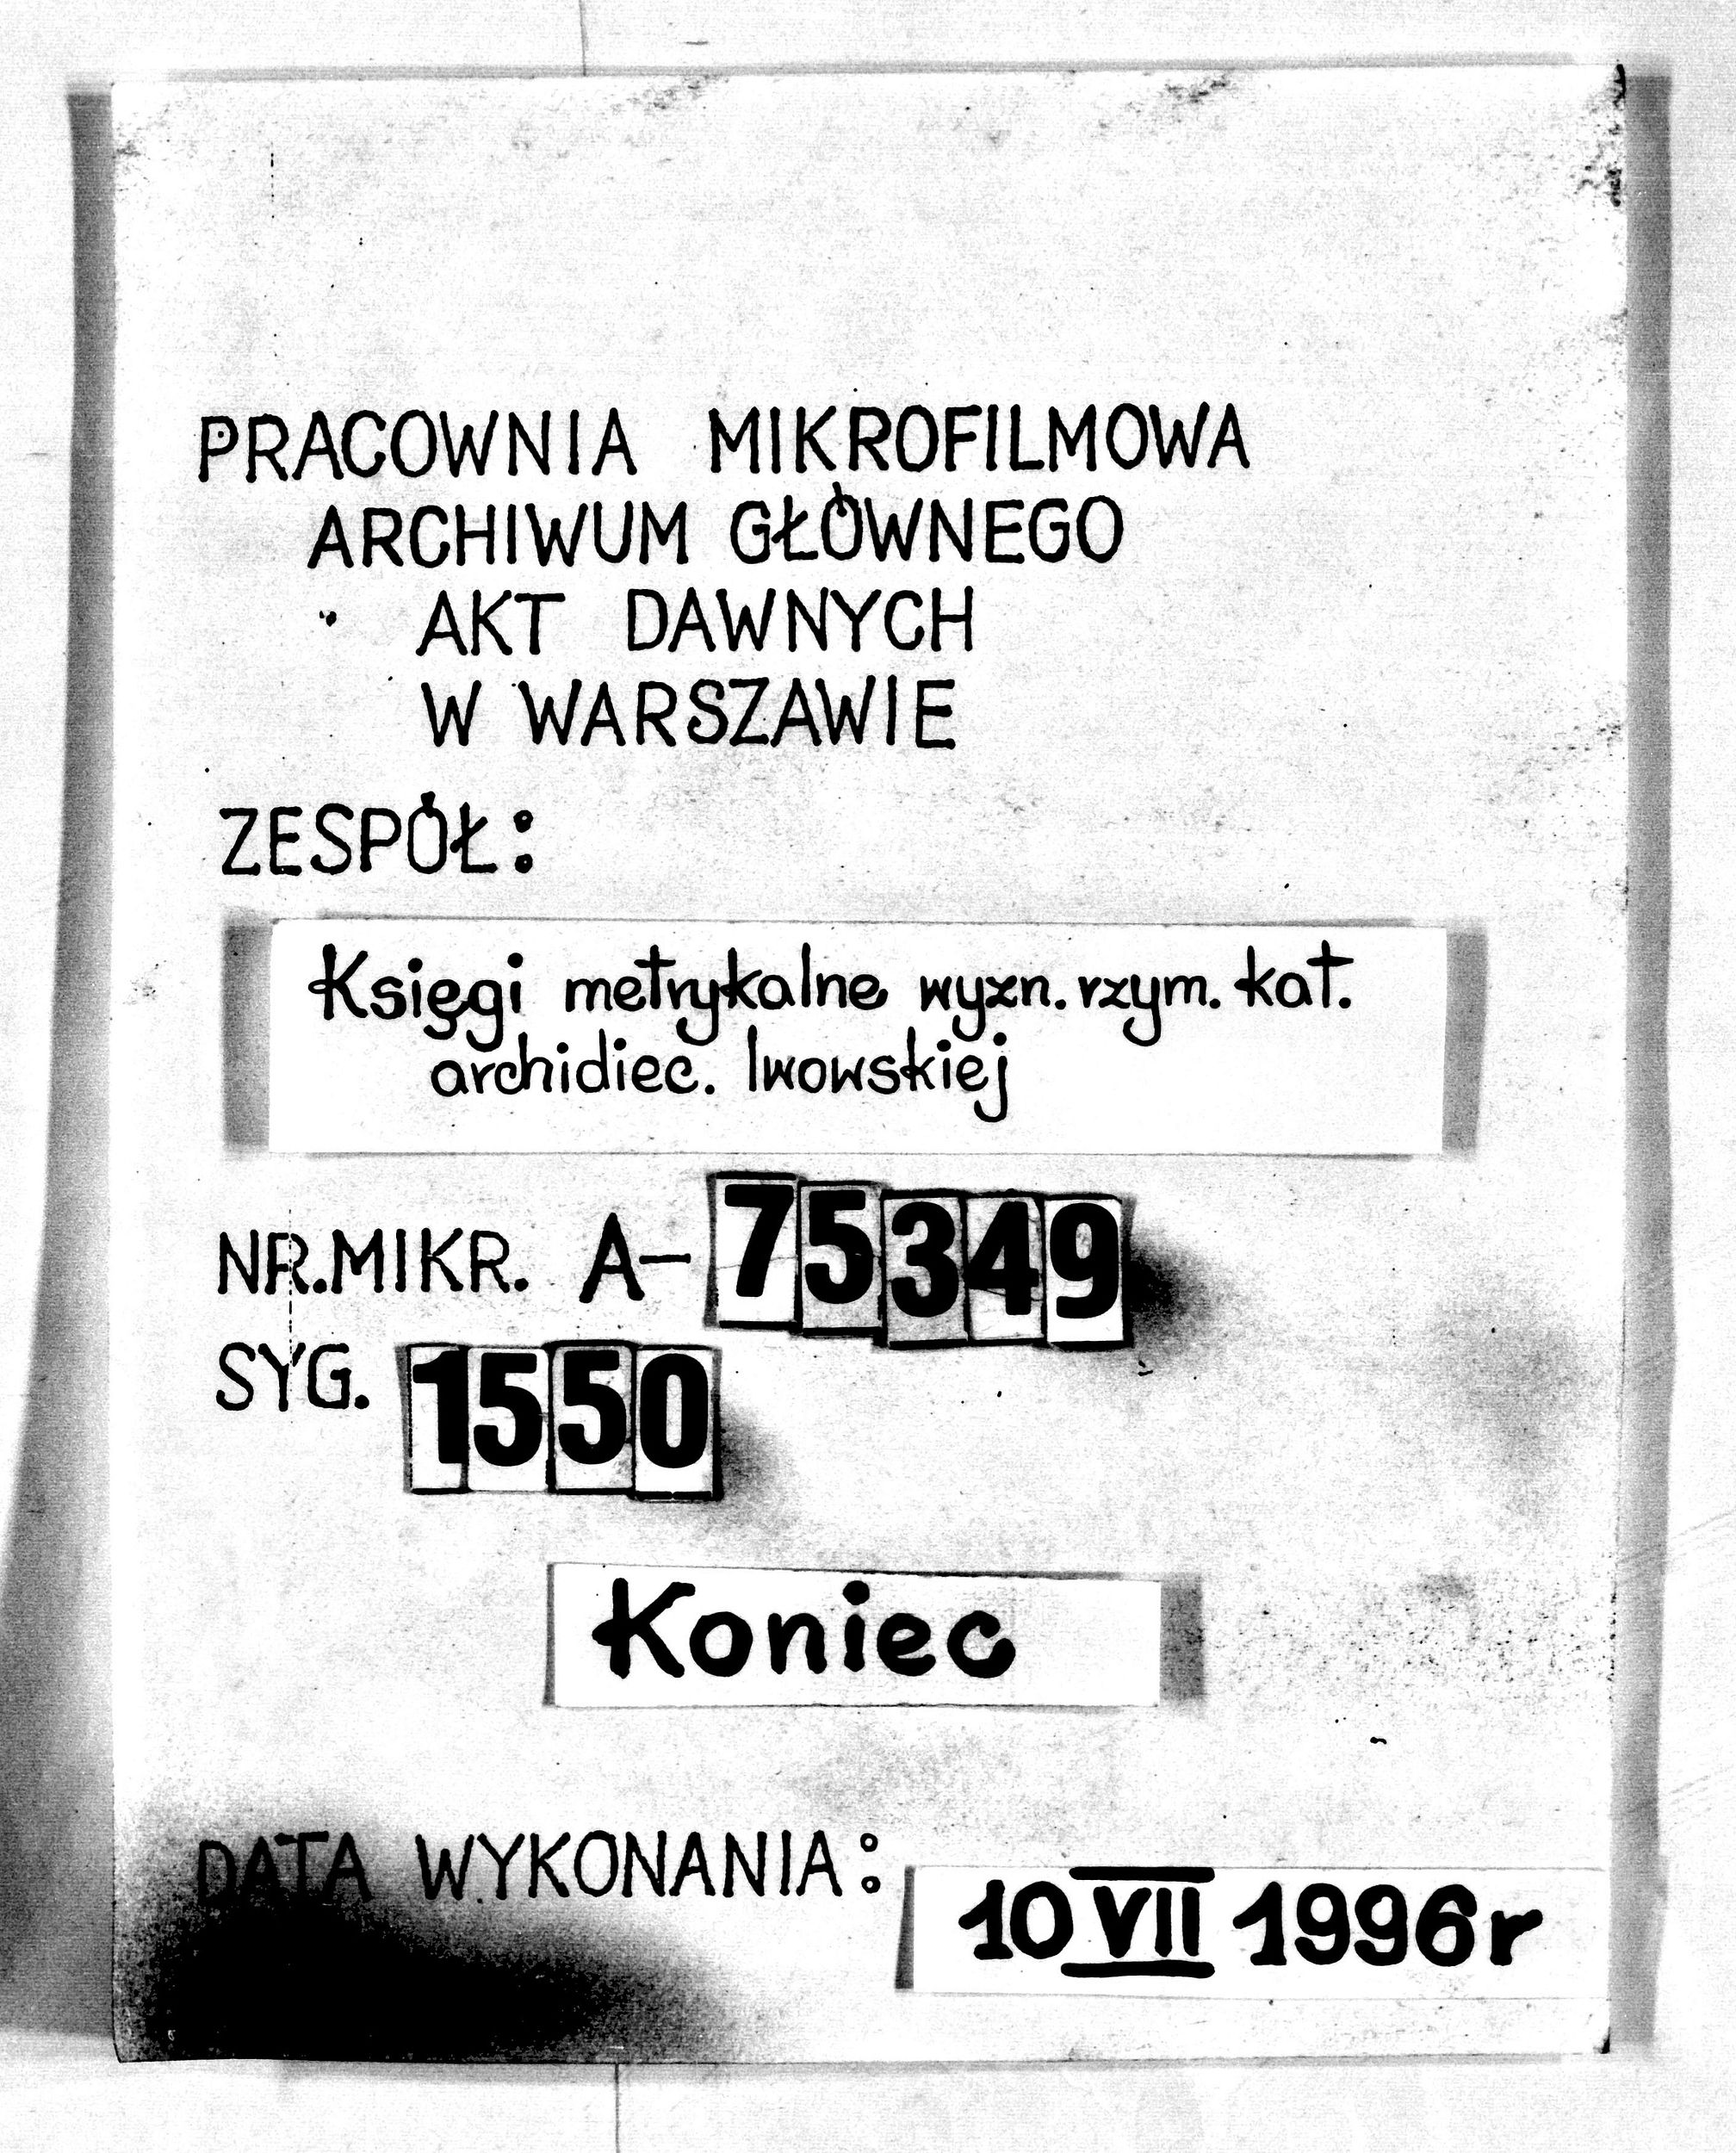 PRACOWNIA MIKROFILMOWA
ARCHIWUM GŁÓWNEGO
AKT DAWNYCH
W WARSZAWIE
ZESPÓŁ:
Księgi metrykalne wyzn. rzym. kat.
archidiec. lwowskiej
NR.MIKR. A-75349
SYG. 1550
Koniec
DATA WYKONANIA: 10 VII 1996r